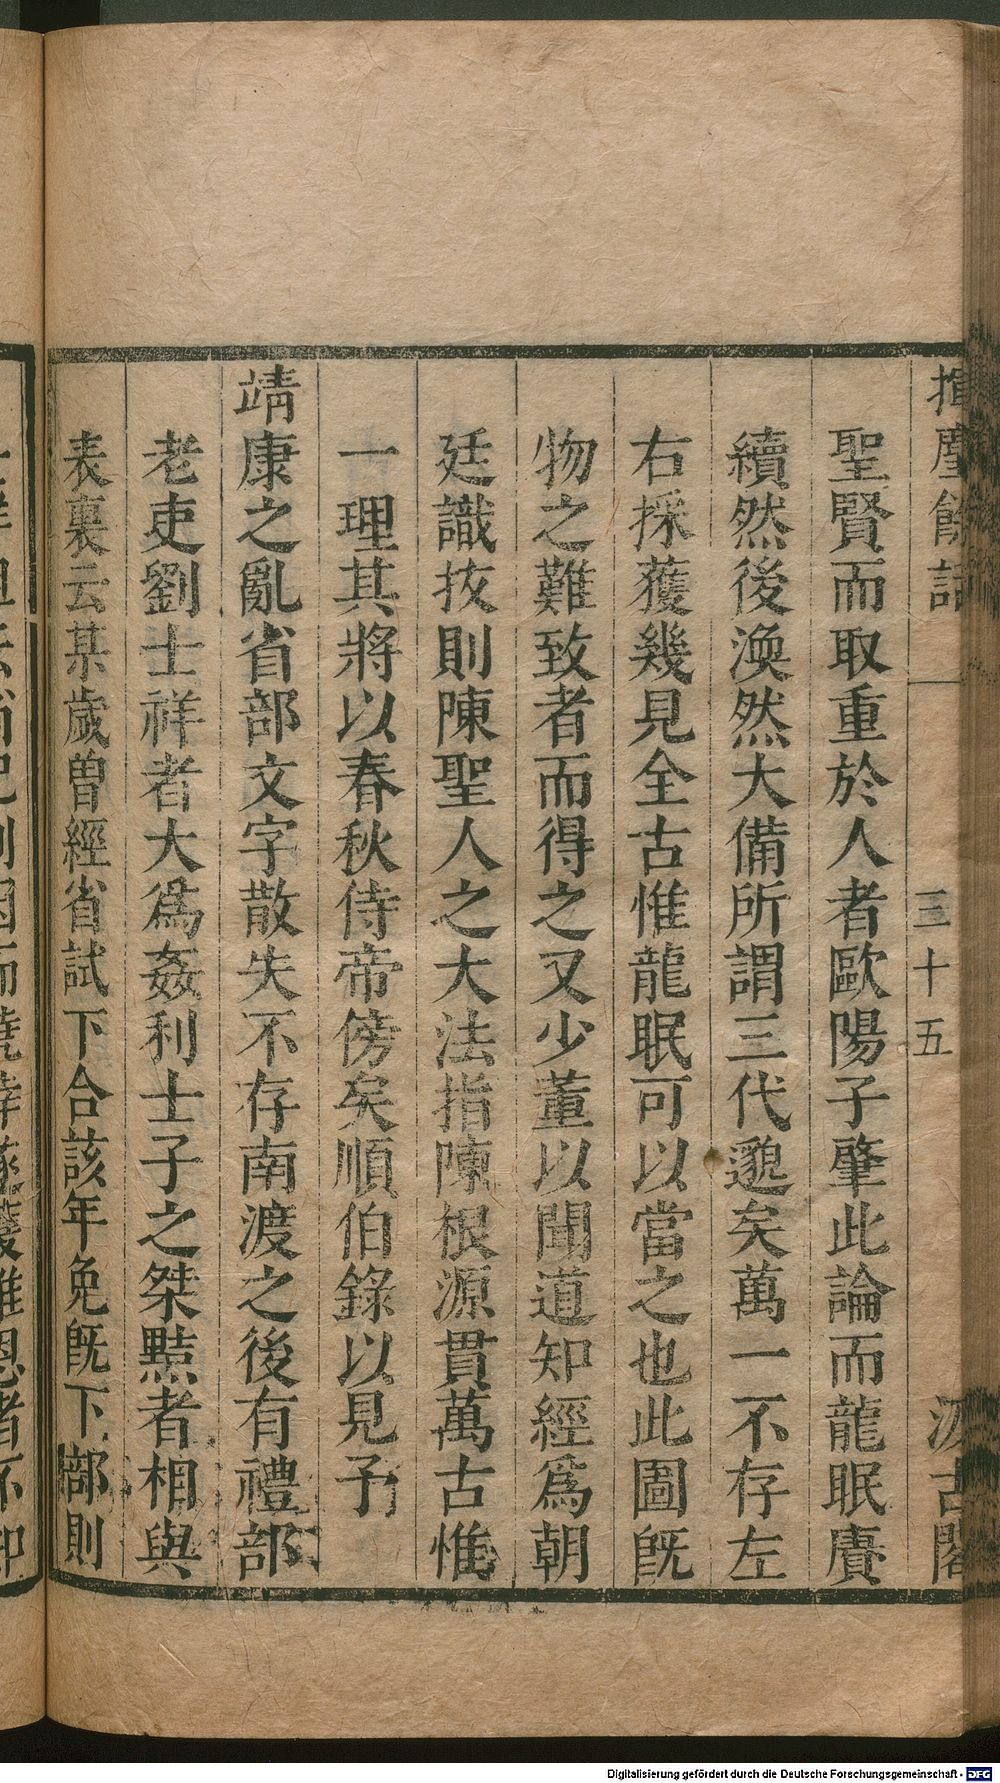 揮麈餘話 三十五 汲古閣
聖賢而取重於人者歐陽子肇此論而龍眠賡
續然後渙然大備所謂三代邈矣萬一不存左
右採獲幾見全古惟龍眠可以當之也此圖旣
物之難致者而得之又少董以聞道知經爲朝
廷識抆則陳聖人之大法指陳根源貫萬古惟
一理其將以春秋侍帝傍矣順伯錄以見予
靖康之亂省部文字散失不存南渡之後有禮部
老吏劉士祥者大爲姦利士子之桀黠者相與
表裏云某歲曾經省試下合該年免旣下部則
Digitalisierung gefördert durch die Deutsche Forschungsgemeinschaft - DFG